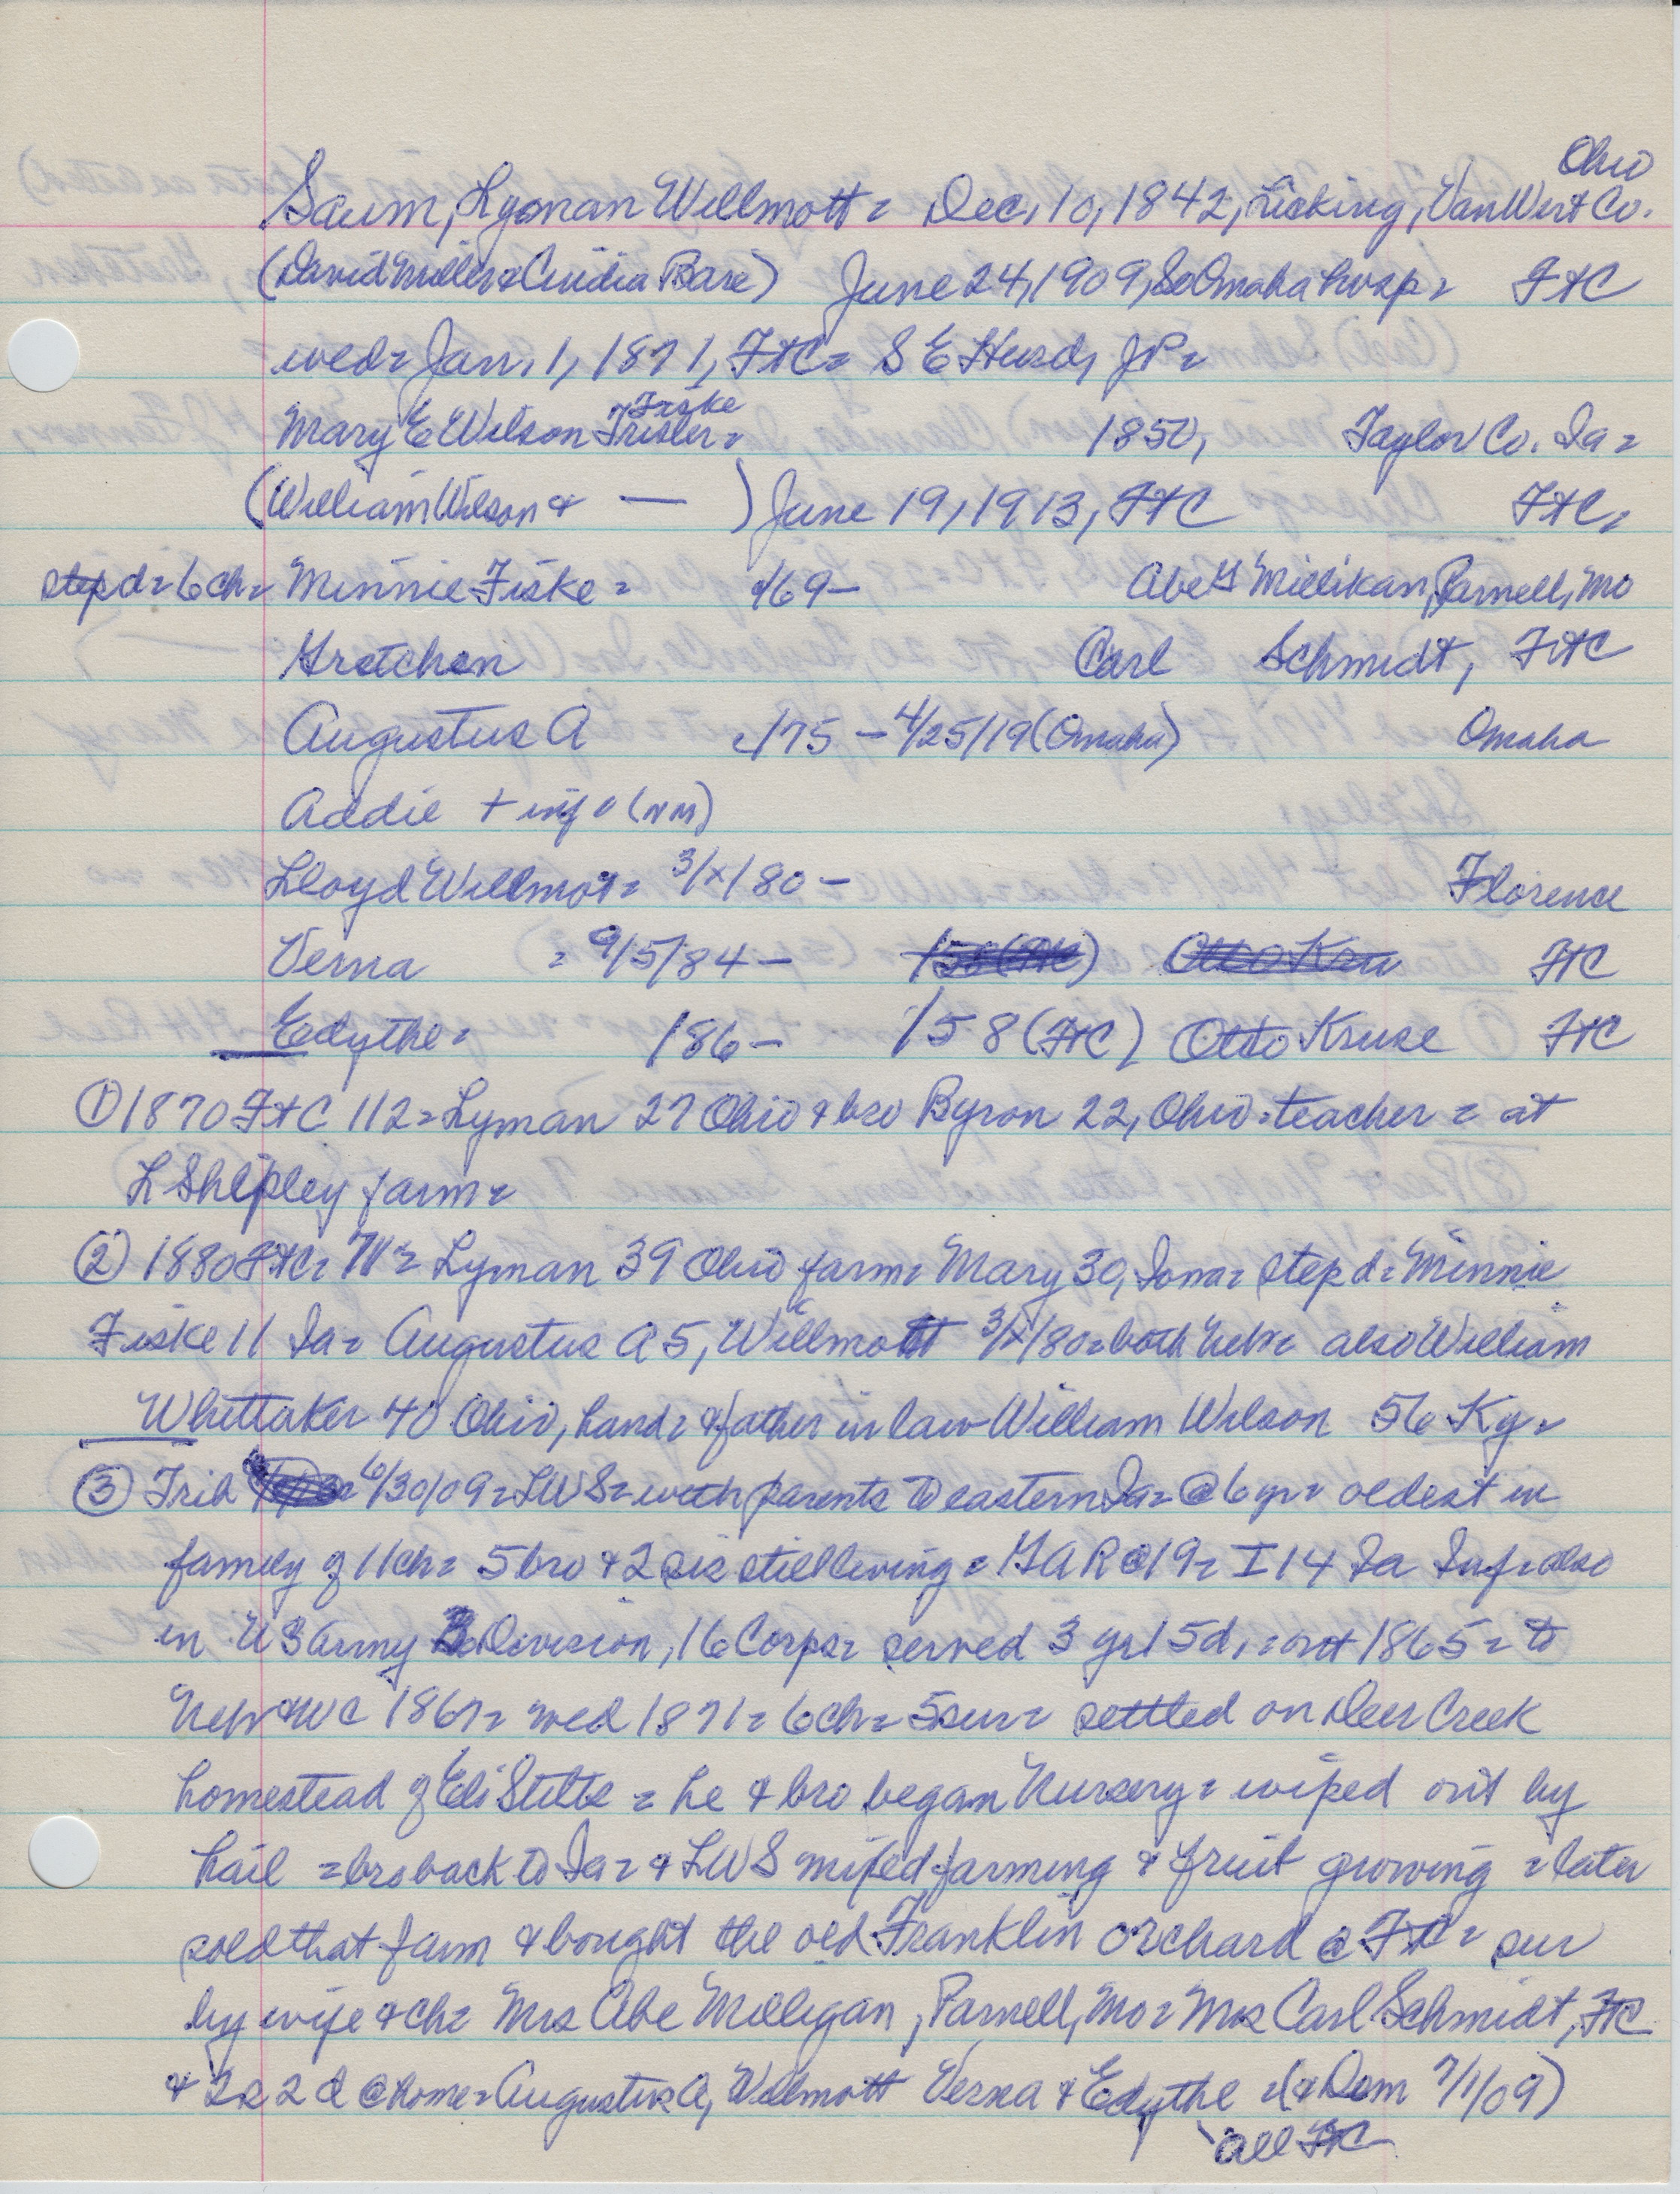 Ohio
Saum, Lyman Willmott = Dec, 10, 1842, Licking, Van Wert Co.
(David Miller & Bare) June 24, 1909, So Omaha hosp = FtC
wed = Jan, 1, 1871, FtC = S E Hurd, JP =
Fiske
Mary E Wilson Frisler = 1850, Taylor Co. Ia =
(William Wilson & — ) June 19, 1913, FtC FtC,
step d = 6 ch = Minnie Fiske = /69 – Abe Millikan, Parnell, Mo
Gretchen Carl Schmidt, FtC
Augustus A /75 – 4/25/19 (Omaha) Omaha
Addie + inf (NM)
Lloyd Willmot = 3/x/80 – Florence
Verna = 9/5/84 – FtC
Eedythe = /86 – /58 (FtC) Otto Kruse FtC
① 1870 FtC 112 = Lyman 27 Ohio & bro Byron 22, Ohio = teacher = at
L Shipley farm =
② 1880 FtC = 71 = Lyman 39 Ohio farm = Mary 30, Iowa = step d = Minnie
Fiske 11 Ia = Augustus A 5, Willmott 3/x/80 = both Nebr = also William
Whittaker 40 Ohio, hand = & father in law William Wilson 56 Ky =
③ Trib 6/30/09 = LWS = with parents to eastern Ia = @ 6 yr = oldest in
family of 11 ch = 5 bro & 2 sis still living = GAR @ 19 = I 14 Ia Inf = also
in US Army 3 Division, 16 Corps = served 3 yr 15 d, = out 1865 = to
Nebr & WC 1867 = wed 1871 = 6 ch = 5 sur = settled on Deer Creek
homestead of Eli Stilts = he & bro began Nursery = wiped out by
hail = bro back to Ia = & LWS mixed farming & fruit growing = later
sold that farm & bought the old Franklin orchard @ FtC = sur
by wife & ch = Mrs Abe Milligan, Parnell, Mo = Mrs Carl Schmidt, FtC
& 2s 2d @ home = Augustus A, Willmott Verna & Edythe = (& Dem 7/1/09)
all FtC